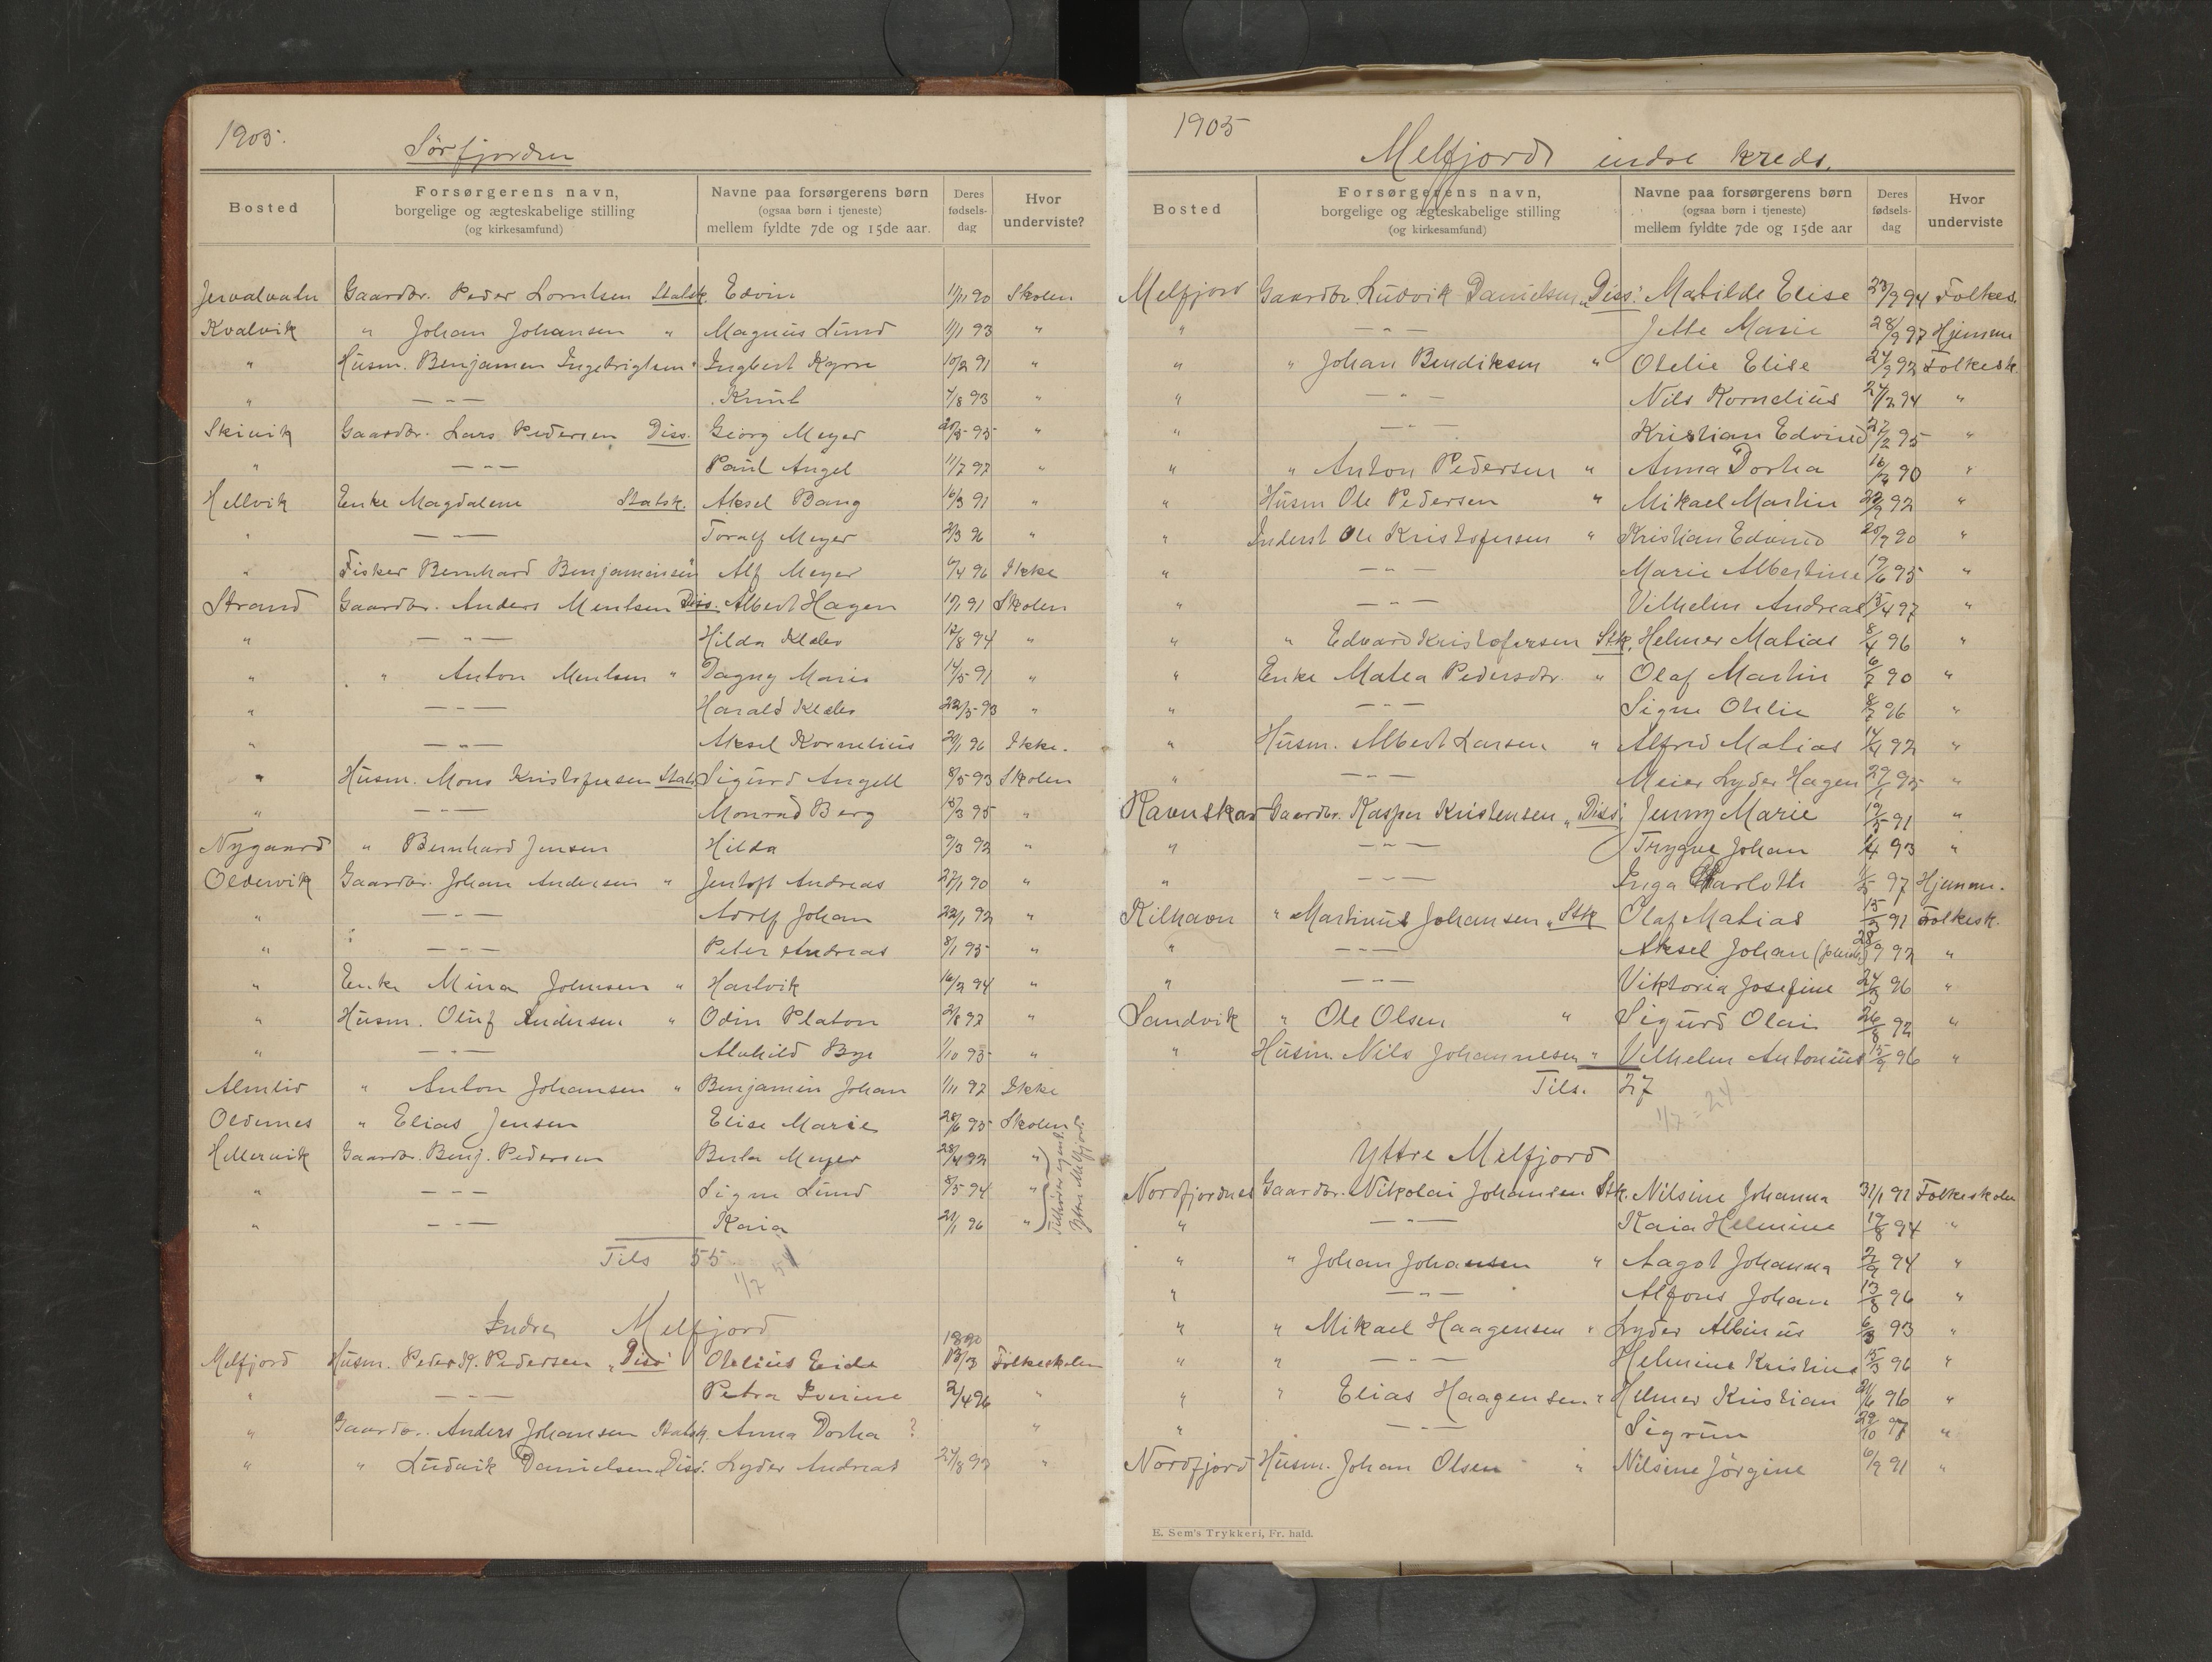 1905.
Sørfjorden
Bosted
Forsørgerens navn,
borgelige og ægteskabelige stilling
(og kirkesamfund)
Navne paa forsørgerens børn
(ogsaa børn i tjeneste)
mellem fyldte 7de og 15de aar.
Deres
fødsels-
dag
Hvor
underviste?
Gaardbr. Peder Lorntsen Statsk. Edvin 11/11 90 Skolen
Kvalvik " Johan Johansen " Magnus Lund 1/1 93 "
" Husm. Benjamen Ingebrigtsen " Ingbert 10/2 91 "
" — " — Knut 4/8 93 "
Skivik Gaardbr. Lars Pedersen Diss. Georg Meyer 95 "
" — " — Paul Angel 11/7 97 "
Hellvik Enke Magdalene Statsk. Aksel Bang 16/3 91 "
" — " — Toralf Meyer 2/3 96 "
" Fisker Bernhard Benjaminsen Alf Meyer 6/4 96 Ikke
Strand Gaardbr. Anders Mentsen Diss. Albert Hagen 17/1 91 Skolen
" — " — Hilda Klæbo 12/8 94 "
" " Anton Mentsen " Dagny Marie 14/5 91 "
" — " — Harald Klæbo 22/5 93 "
" — " — Aksel Kornelius 20/1 96 Ikke.
" Husm. Mons Kristofersen Stats. Sigurd Angell 8/5 93 Skolen
" — " — Monrad Berg 18/3 95 "
Nygaard " Bernhard Jensen Hilda 9/3 92 "
Oldervik Gaardbr. Johan Andersen " Jentoft Andreas 27/1 90 "
" — " — Adolf Johan 22/1 92 "
" — " — Peter Andreas 8/1 95 "
" Enke Mina Johnsen " Hartvik 16/2 94 "
" Husm. Oluf Andersen " Odin Platon 2/8 92 "
" — " — Alvhild Bye 1/10 95 "
Almlid " Anton Johansen " Benjamin Johan 1/11 97 Ikke
Oldernes " Elias Jensen Elise Marie 28/6 95 Skolen
Hellervik Gaardbr. Benj. Pedersen Berta Meyer 28/4 92 "
" — " — Signe Lund 8/5 94 "
" — " — Kaia 21/1 96 "
Tilhører egentl.
Ytre Melfjord.
Tils 55
1/7 54
Indre Melfjord
1890
Melfjord Husm. Peder K. Pedersen "Diss" Otelius Eide 13/3 Folkeskolen
" — " — Petra Severine 2/4 96 "
" Gaardbr. Anders Johansen Statsk. Anna Dorha ? "
" " Ludvik Danielsen Diss. Lyder Andreas 27/8 92 "
1905
Melfjords indre kreds.
Bosted
Forsørgerens navn,
borgelige og ægteskabelige stilling
(og kirkesamfund)
Navne paa forsørgerens børn
(ogsaa børn i tjeneste)
mellem fyldte 7de og 15de aar
Deres
fødsels-
dag
Hvor
underviste
Melfjord Gaardbr. Ludvik Danielsen "Diss". Matilde Elise 23/9 94 Folkes.
" — " — Jette Marie 28/9 97 Hjemme
" " Johan Bendiksen " Otelie Elise 24/9 92 Folkesk.
" — " — Nils Kornelius 27/2 94 "
" — " — Kristian Edvind 27/2 95 "
" " Anton Pedersen " Anna Dorha 90 "
" Husm Ole Pedersen " Mikael Martin 22/9 92 "
" Inderst Ole Kristofersen " Kristian Edvind 20/9 90 "
" — " — Marie Albertine 19/6 95 "
" — " — Vilhelm Andreas 15/4 97 "
" " Edvard Kristofersen Stk. Helmer Matias 8/4 96 "
" Enke Matea Pedersdtr. " Olaf Martin 6/7 90 "
" — " — Signe Otelie 96 "
" Husm. Albert Larsen " Alfred Matias 92 "
" — " — Meier Lyder Hagen 29/1 95 "
Ravnskar Gaardbr. Kasper Kristensen "Diss". Jenny Marie 19/5 91 "
" — " — Trygve Johan 93 "
" — " — Inga Charlotte 97 Hjemme.
Kilhavn " Martinus Johansen "Stk Olaf Matias 15/3 91 Folkesk.
" — " — Aksel Johan 28/9 92 "
" — " — Viktoria Josefine 96 "
Sandvik " Ole Olsen " Sigurd Olai 26/8 92 "
" Husm. Nils Johannesen " Vilhelm Antonius 15/9 96 "
Tils. 27
1/7 = 24
Yttre Melfjord
Nordfjordnes Gaardbr. Nikolai Johansen Stk. Nilsine Johanna 31/1 91 Folkeskolen
" — " — Kaia Helmine 19/8 94 "
" " Johan Johansen " Aagot Johanna 2/9 94 "
" — " — Alfons Johan 13/8 96 "
" " Mikael Haagensen " Lyder Albinus 6/3 93 "
" " — " — Helmine Kristine 15/3 96 "
" " Elias Haagensen " Helmer Kristian 21/6 96 "
" — " — Sigrun 29/10 97 "
Nordfjord Husm. Johan Olsen " Nilsine Jørgine 6/9 91 "
E. Sem's Trykkeri, Fr. hald.